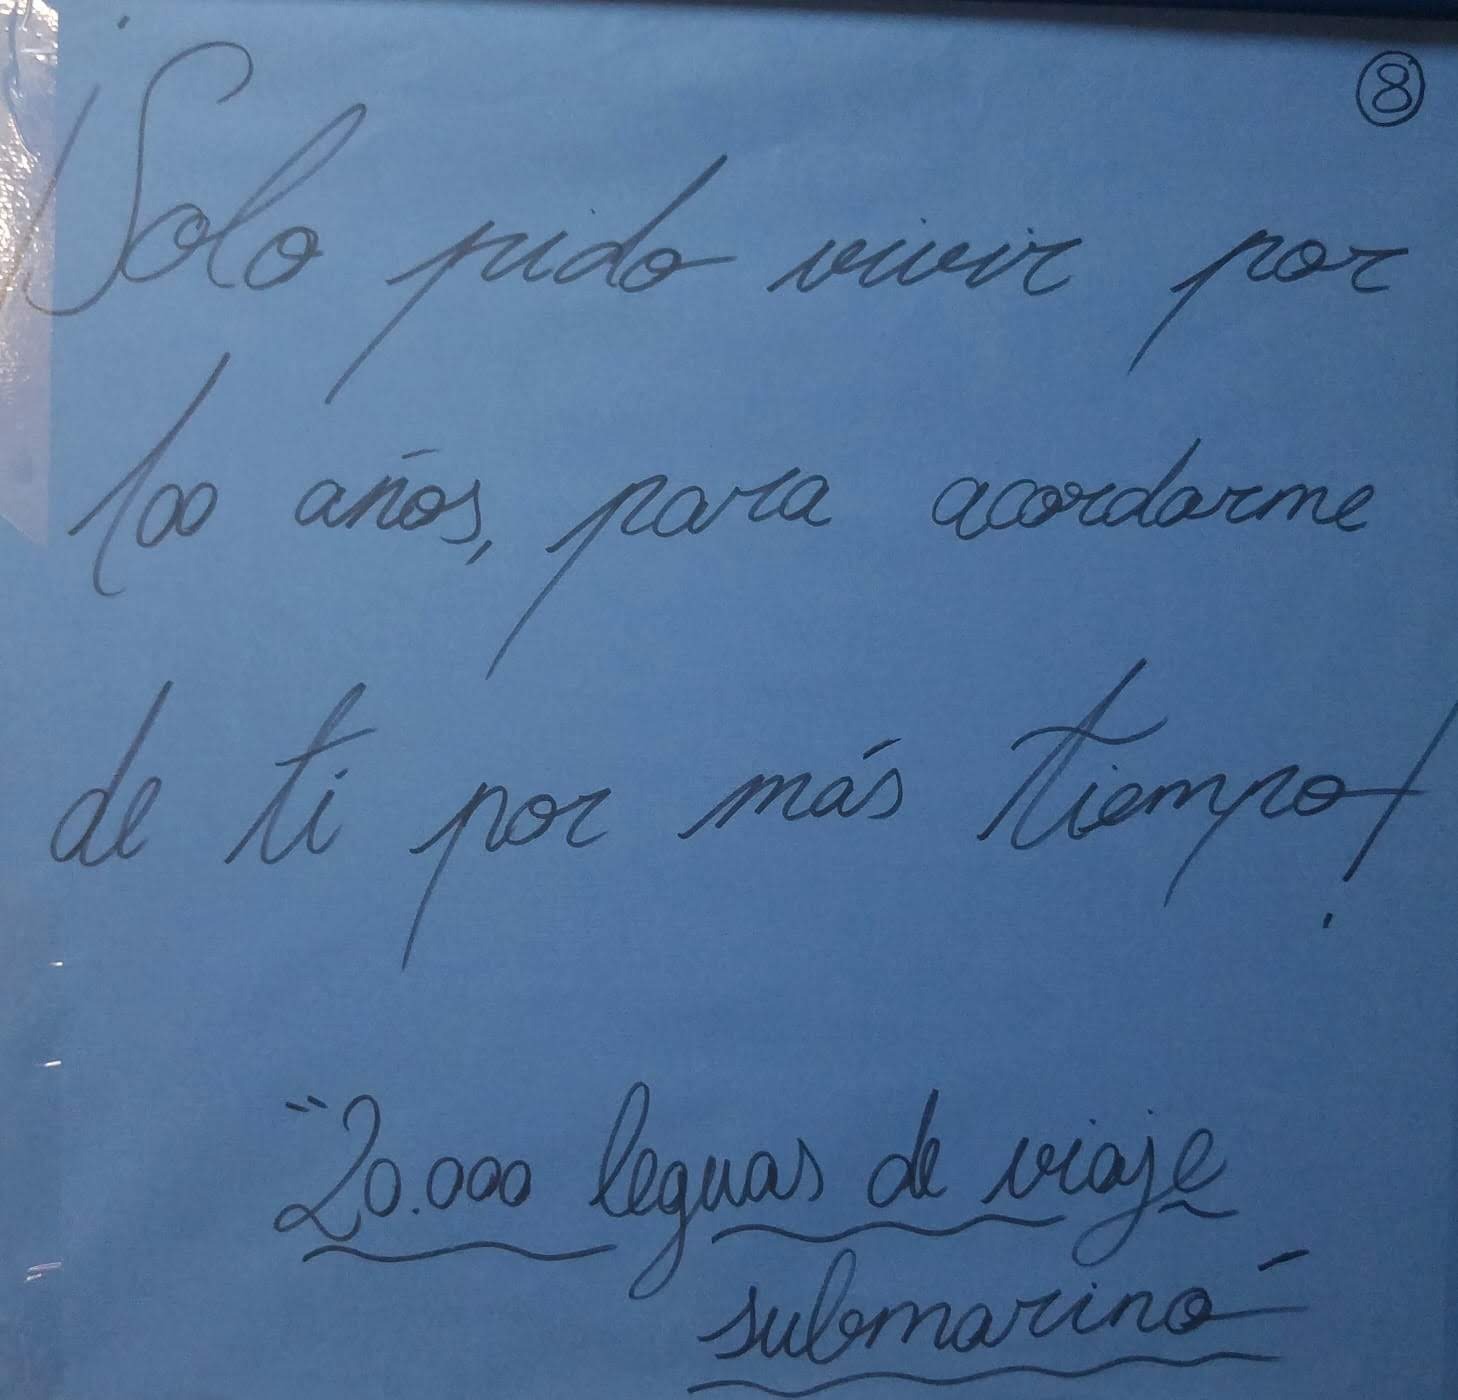 8
¡Solo pido vivir por
100 años, para acordarme
de ti por más tiempo!
"20.000 leguas de viaje
submarino"